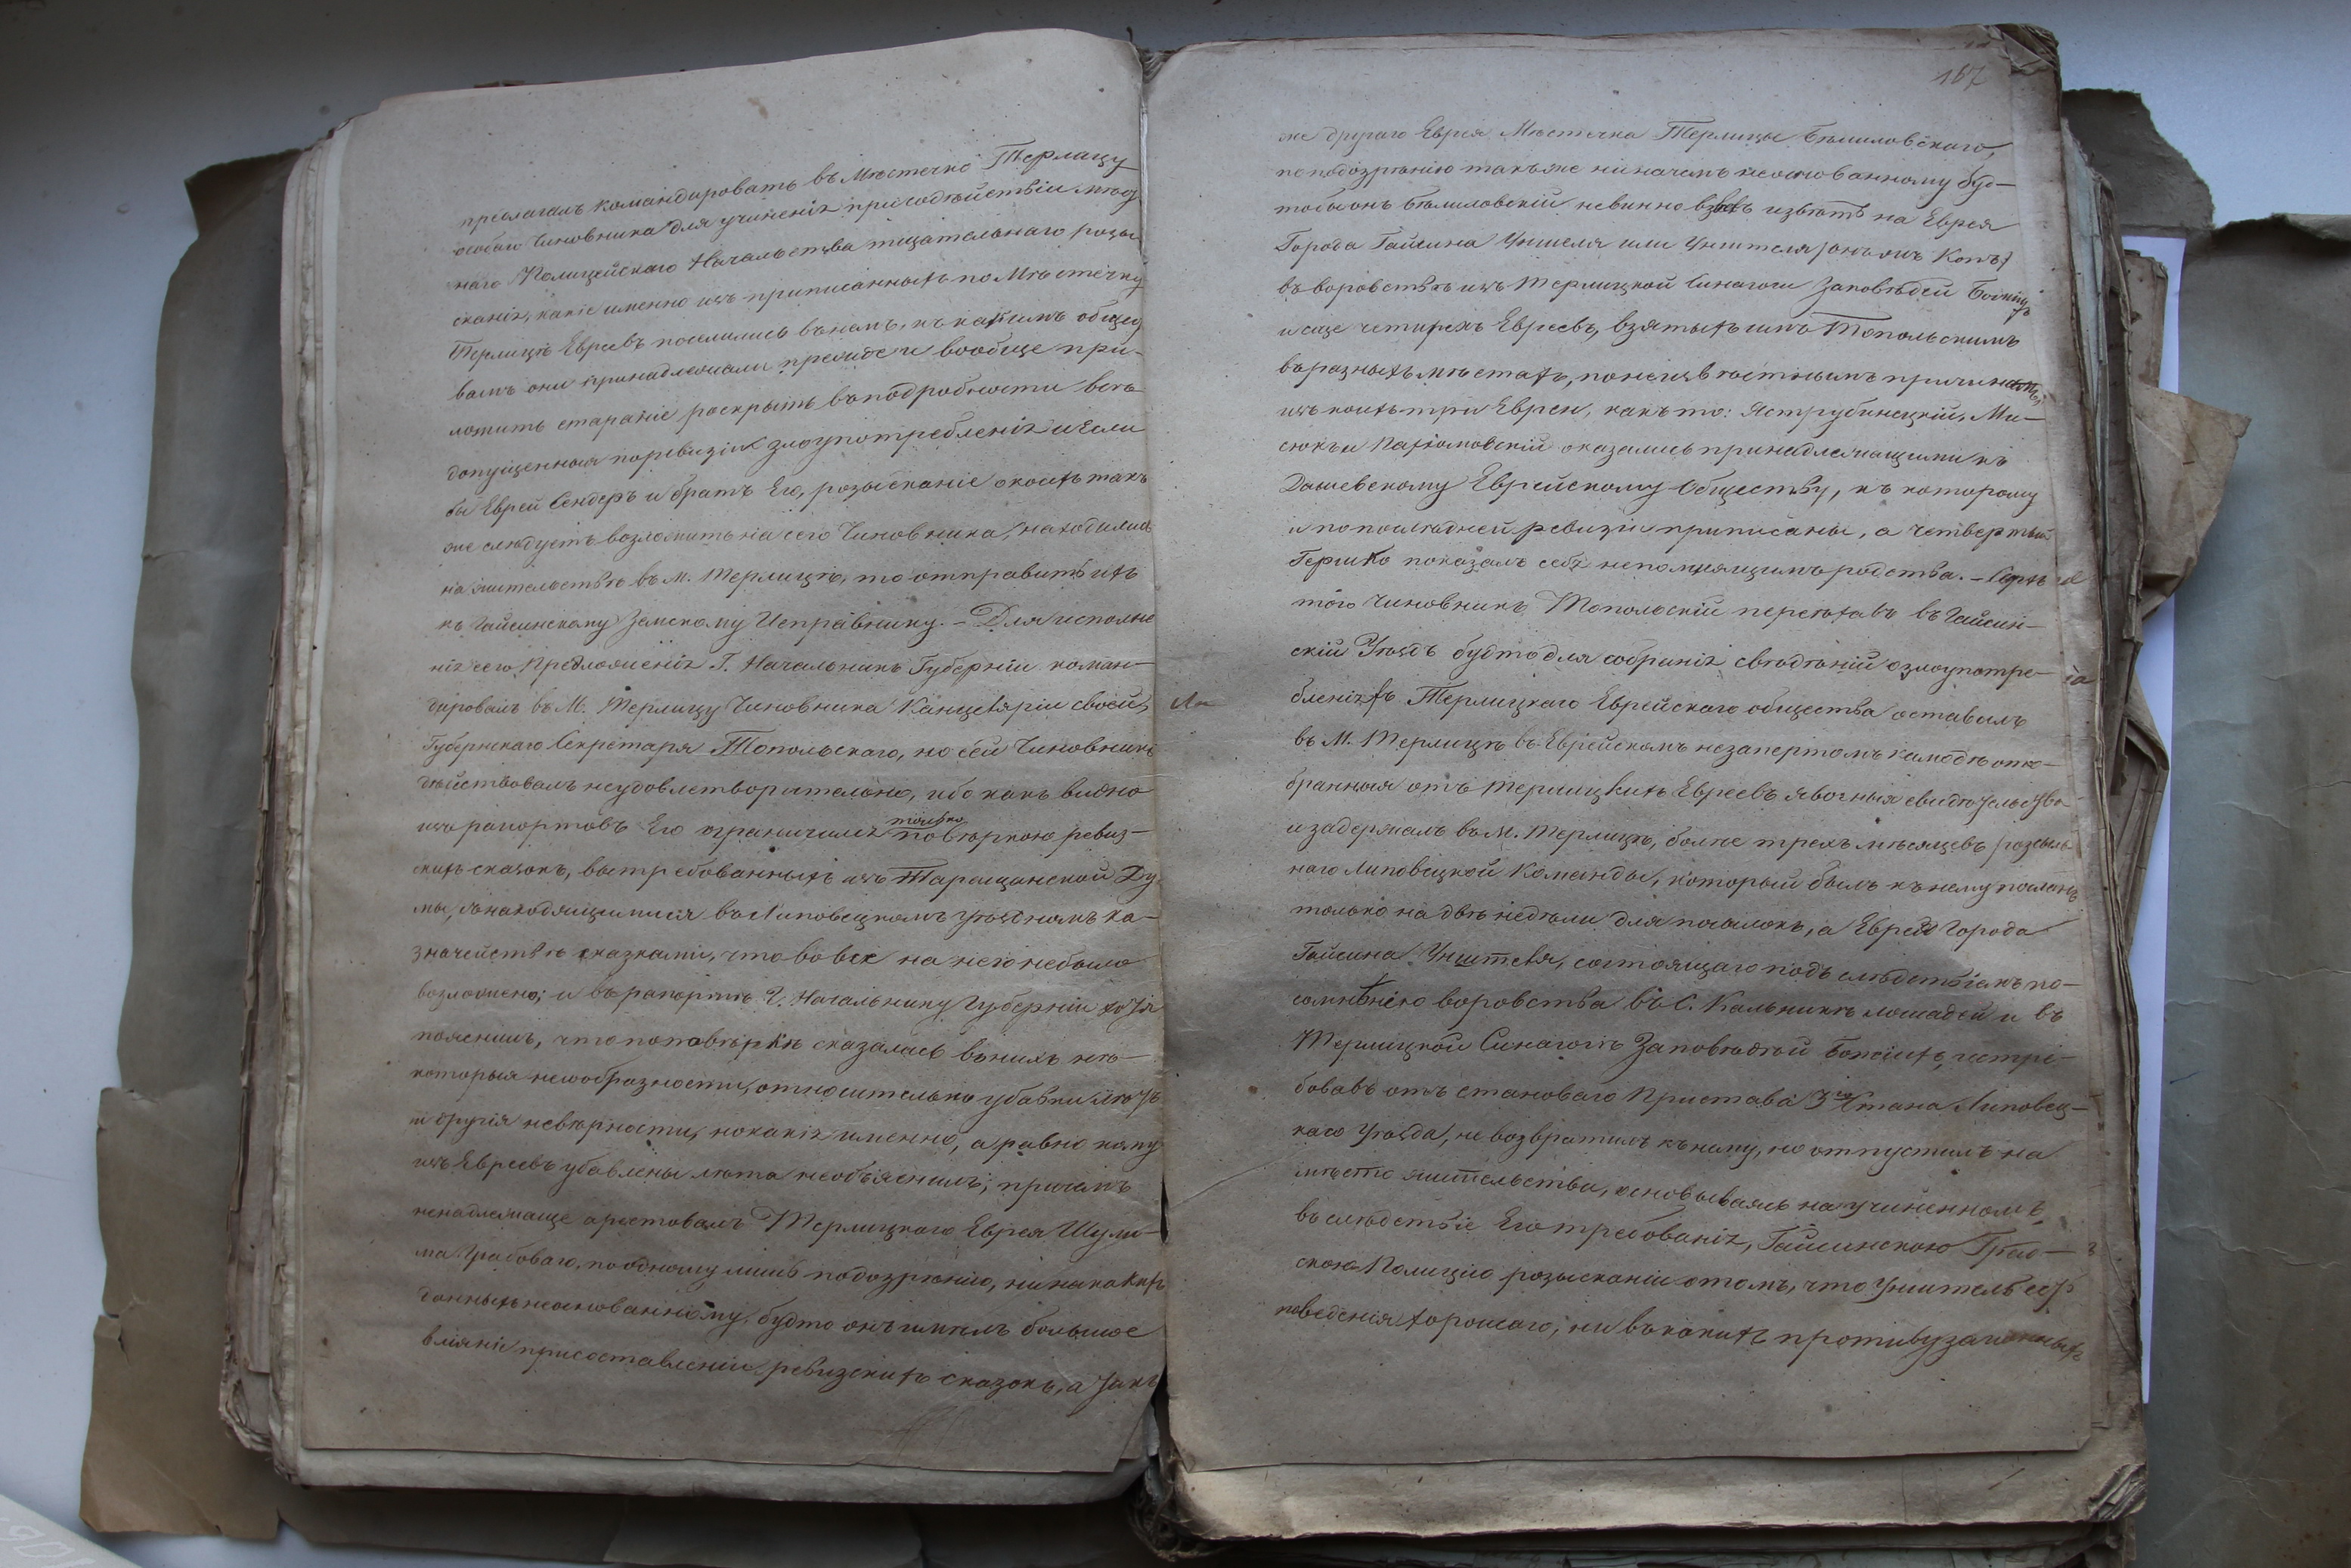 предлагалъ командировать въ Мѣстечко Терлицу
особаго Чиновника для учиненія при содѣйствіи мѣст
наго Полицейскаго Начальства тщательнаго розы
сканія, какіе именно изъ приписанныхъ по Мѣстечку
Терлицѣ Евреевъ поселились въ немъ, къ какимъ общест
вамъ они принадлежали прежде и вообще при-
ложить стараніе раскрыть въ подробности всѣ
допущенныя по ревизіи злоупотребленія и если
бы Еврей Сендеръ и братъ Его, розысканіе о коихъ такъ
же слѣдуетъ возложить на сего Чиновника, находились
на жительствѣ въ м. Терлицѣ, то отправить ихъ
къ Гайсинскому Земскому Исправнику. – Для исполне
нія сего предложенія Г. Начальникъ Губерніи коман-
дировалъ въ М. Терлицу Чиновника Канцеляріи своей,
Губернскаго Секретаря Топольскаго, но сей Чиновникъ
дѣйствовалъ неудовлетворительно, ибо какъ видно
изъ рапортовъ Его ограничился только повѣркою ревиз-
скихъ сказокъ, вытребованныхъ изъ Таращанской Ду
мы, съ находящимися въ Липовецкомъ уѣздномъ ка-
значействѣ сказками, что вовсе на него небыло
возложено; и въ рапортѣ Г. Начальнику Губерніи хотя
пояснилъ, что по повѣркѣ оказалась въ нихъ нѣ-
которыя несообразности, относительно убавки лѣтъ
и другія невѣрности, но какія именно, а равно кому
изъ Евреевъ убавлены лѣта необъяснилъ; причемъ
ненадлежаще арестовалъ Терлицкаго Еврея Шули-
ма Грабоваго, по одному лишь подозрѣнію, ни на какихъ
данныхъ неоснованному, будто онъ имѣлъ большое
вліяніе при составленіи ревизскихъ сказокъ, а такъ
167
же другаго Еврея Мѣстечка Терлицы Бѣлиловскаго,
по подозрѣнію такъ же ни на чемъ неоснованному буд-
то бы онъ Бѣлиловскій невинно взвелъ извѣтъ на Еврея
Города Гайсина Уншеля или Уншителя онъ жъ Котъ
въ воровствѣ изъ Терлицкой Синагоги Заповѣдей Божіихъ
и еще четырехъ Евреевъ, взятыхъ имъ Топольскимъ
въ разныхъ мѣстахъ, по неизвѣстнымъ причинамъ,
изъ коихъ три Еврея, какъ то: Яструбинецкій, Ми-
сюкъ и Пархомовскій оказались принадлежащими къ
Дашевскому Еврейскому Обществу, къ которому
и по послѣдней ревизіи приписаны, а четвертый
Гершко показалъ себя непомнящимъ родства. – Сверхъ
того Чиновникъ Топольскій переѣхавъ въ Гайсин-
скій Уѣздъ будто для собранія свѣдѣній о злоупотре-
бленіяхъ Терлицкаго Еврейскаго общества оставилъ
въ М. Терлицѣ въ Еврейскомъ незапертомъ комодѣ ото-
бранныя отъ Терлицкихъ Евреевъ явочныя свидѣтельства
и задержалъ въ М. Терлицѣ, болѣе трехъ мѣсяцевъ разсыль
наго Липовецкой Команды, который былъ къ нему посланъ
только на двѣ недѣли для посылокъ, а Еврея Города
Гайсина Уншителя, состоящаго подъ слѣдствіемъ по-
сомнѣнію воровства въ С. Кальникѣ лошадей и въ
Терлицкой Синагогѣ Заповѣдей Божіихъ, истре-
бовавъ отъ становаго Пристава 3го Стана Липовец-
каго Уѣзда, не возвратилъ къ нему, но отпустилъ на
мѣсто жительства, основываясь на учиненномъ,
въ слѣдствіе Его требованія, Гайсинскою Град-
скою Полиціею розысканіи о томъ, что Уншитель есть
поведенія хорошаго, ни въ какихъ противузаконныхъ